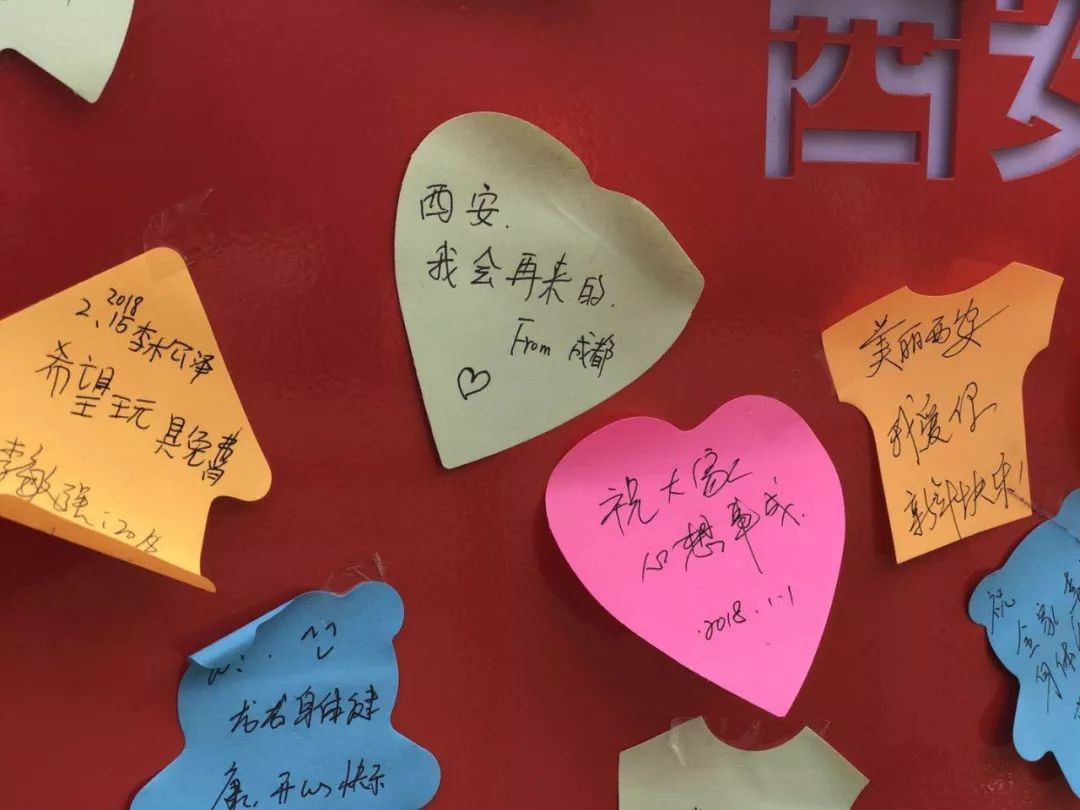 西安
西安.
我会再来的.
From 成都
2018
2.15 李木公泽
希望玩具免费
李敏强:2018
美丽西安
我爱你
新年快乐!
祝大家
心想事成.
2018.1.1
身体健
康、开心快乐
祝
全家
身体